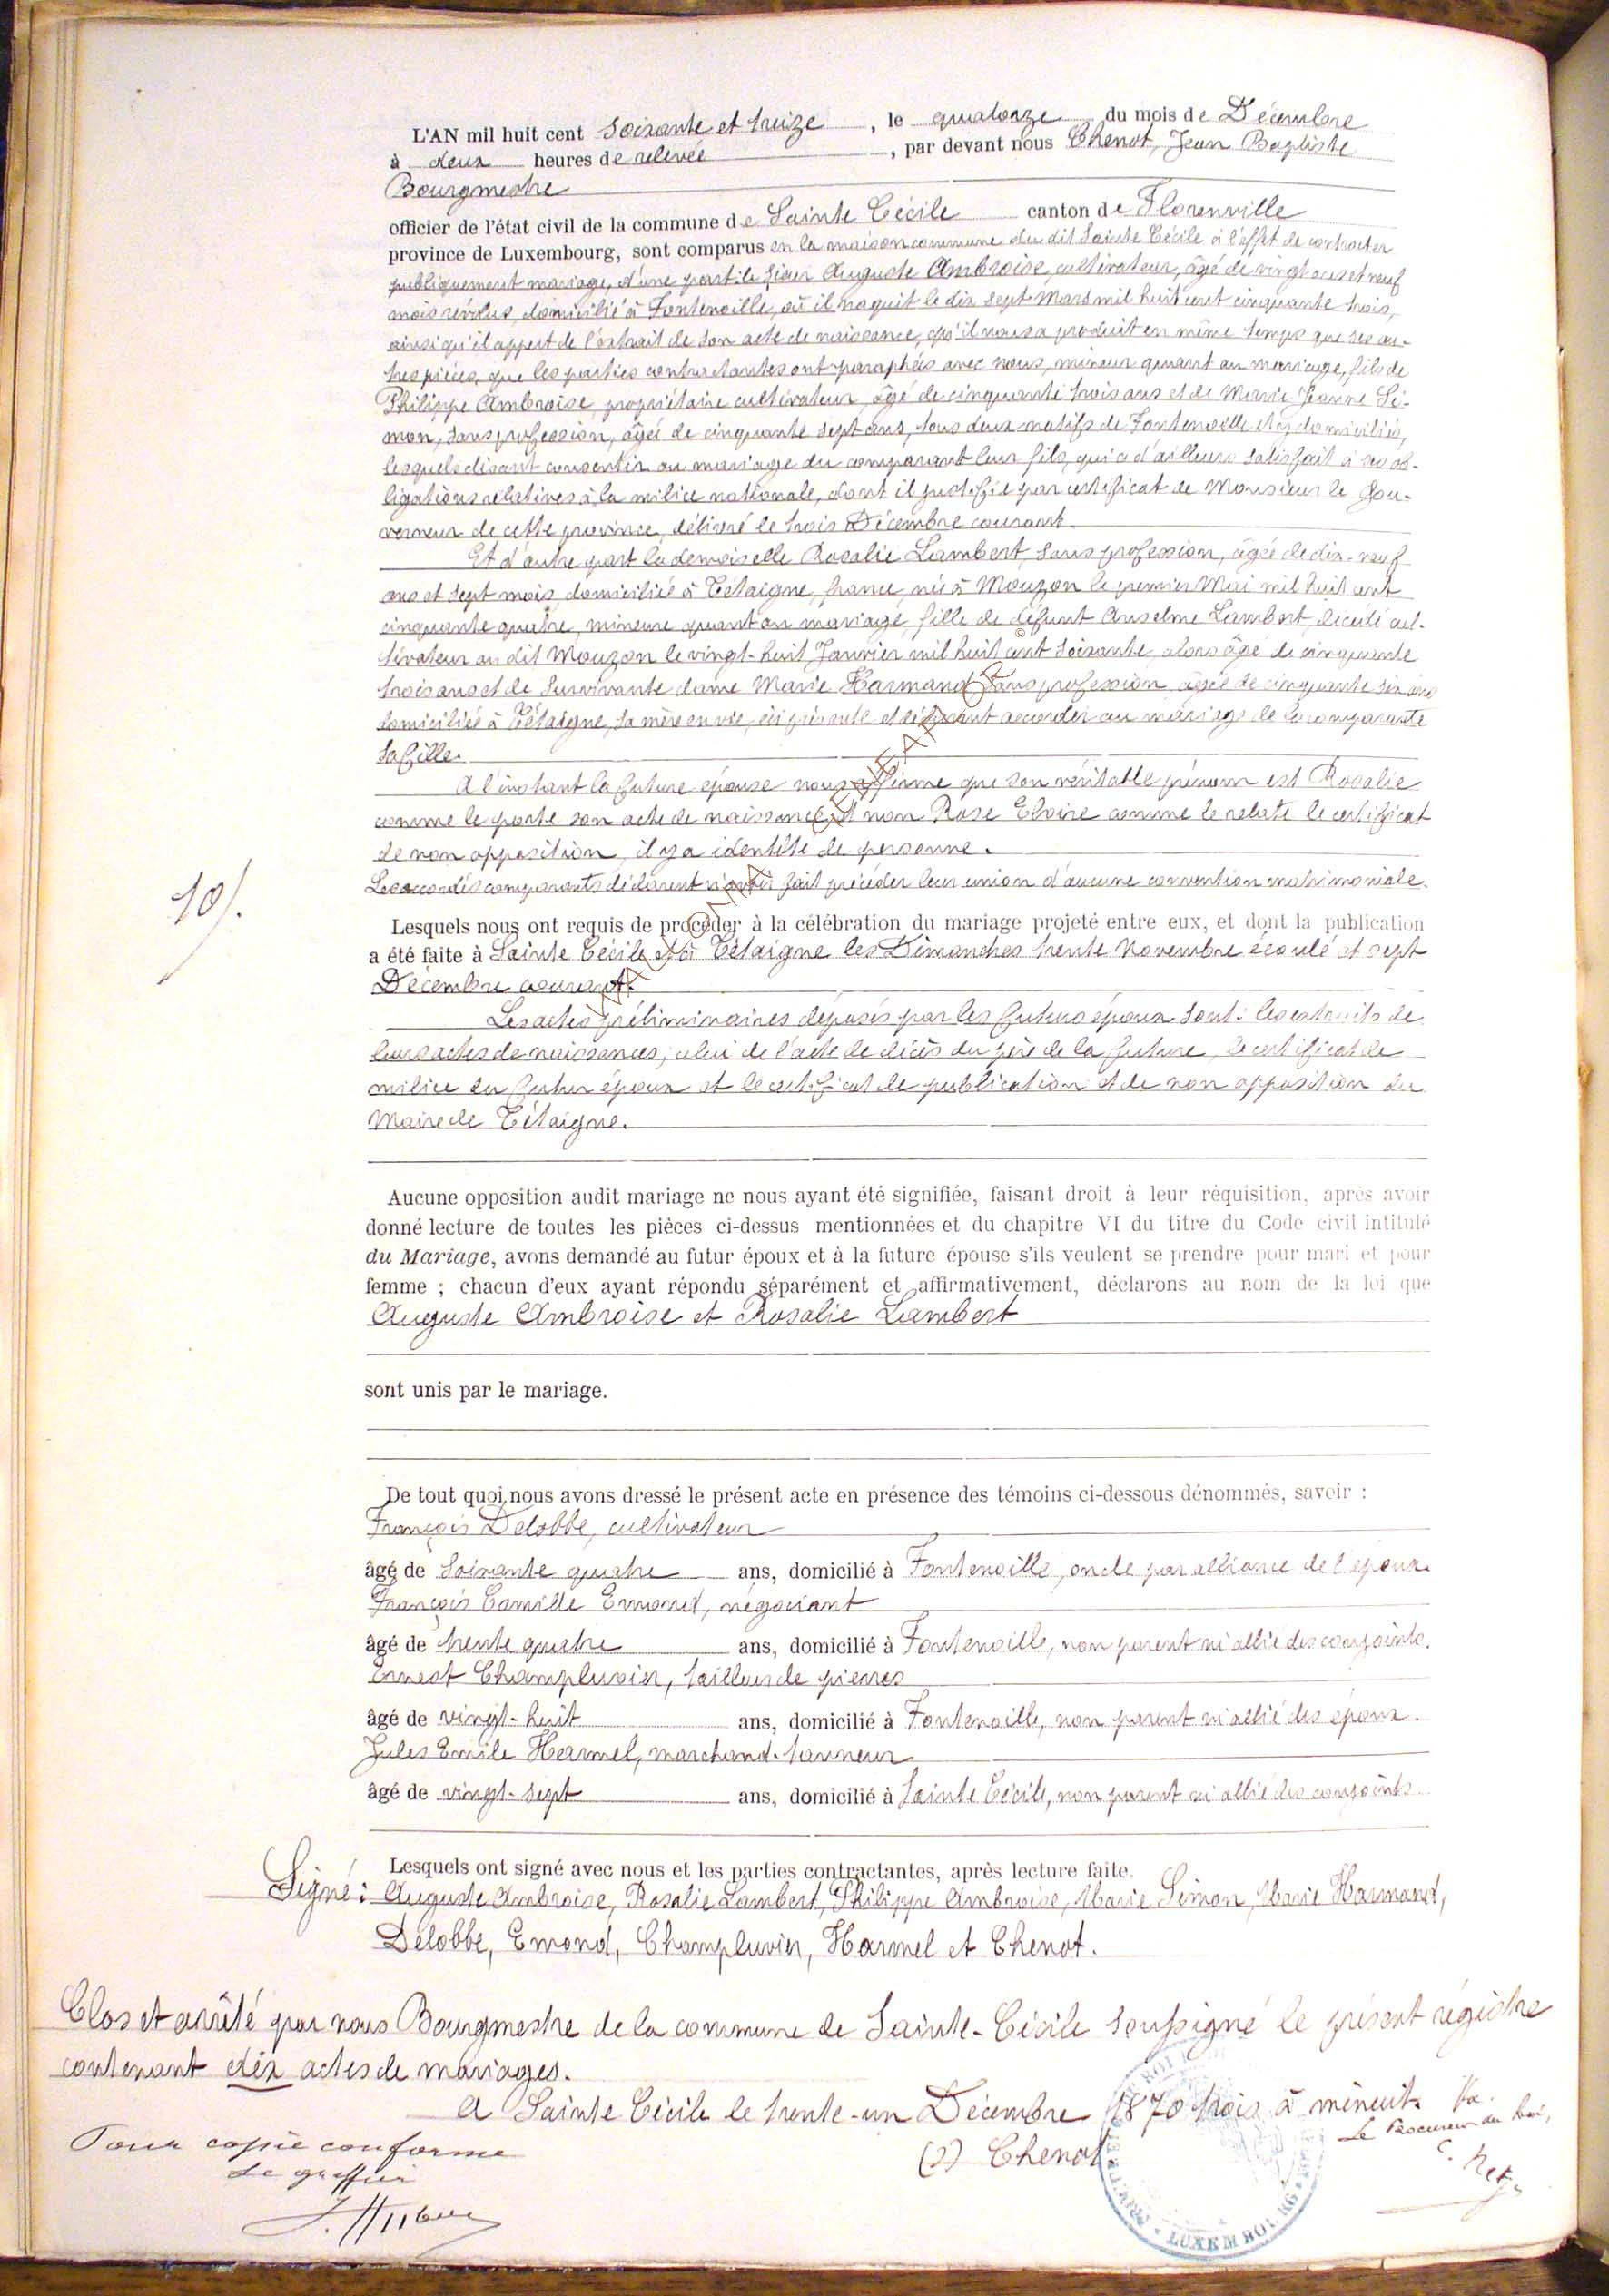 L'AN mil huit cent soixante et treize, le quatorze du mois de Décembre
à deux heures de relevée, par devant nous Chenot, Jean Baptiste
Bourgmestre
officier de l'état civil de la commune de Sainte Cécile canton de Florenville
province de Luxembourg, sont comparus en la maison commune du dit Sainte Cécile à l'effet de contracter
publiquement mariage, d'une part le sieur Auguste Ambroise, cultivateur, âgé de vingt ans et neuf
mois révolus, domicilié à Fontenoille, où il naquit le dix sept Mars mil huit cent cinquante trois,
ainsi qu'il appert de l'extrait de son acte de naissance, qu'il nous a produit en même temps que ses au-
tres pièces, que les parties contractantes ont paraphés avec nous, mineur quant au mariage, fils de
Philippe Ambroise, propriétaire cultivateur, âgé de cinquante trois ans et de Marie Jeanne Si-
mon, sans profession, âgée de cinquante sept ans, tous deux natifs de Fontenoille et y domiciliés,
lesquels disant consentir au mariage du comparant leur fils, qui a d'ailleurs satisfait à ses ob-
ligations relatives à la milice nationale, dont il justifie par certificat de Monsieur le Gou-
verneur de cette province, délivré le trois Décembre courant.
Et d'autre part la demoiselle Rosalie Lambert, sans profession, âgée de dix-neuf
ans et sept mois, domiciliée à Tétaigne, france, née à Mouzon le premier Mai mil huit cent
cinquante quatre, mineure quant au mariage, fille de défunt Anselme Lambert, décédé cul-
tivateur au dit Mouzon le vingt-huit Janvier mil huit cent soixante, alors âgé de cinquante
trois ans et de survivante dame Marie Harmand, sans profession, âgée de cinquante six ans
domiciliée à Tétaigne, sa mère en vie, ici présente et déclarant accorder au mariage de la comparante
sa fille.
A l'instant la future épouse nous affirme que son véritable prénom est Rosalie
comme le porte son acte de naissance et non Rose Eloise comme le relate le certificat
de non opposition, il y a identité de personne.
Les accordés comparants déclarent n'avoir fait précéder leur union d'aucune convention matrimoniale.
10/.
Lesquels nous ont requis de procéder à la célébration du mariage projeté entre eux, et dont la publication
a été faite à Sainte Cécile et à Tétaigne les Dimanches trente Novembre écoulé et sept
Décembre courant.
Les actes préliminaires déposés par les futurs époux sont: les extraits de
leurs actes de naissances, celui de l'acte de décès du père de la future, le certificat de
milice du futur époux et le certificat de publication et de non opposition du
Maire de Tétaigne.
Aucune opposition audit mariage ne nous ayant été signifiée, faisant droit à leur réquisition, après avoir
donné lecture de toutes les pièces ci-dessus mentionnées et du chapitre VI du titre du Code civil intitulé
du Mariage, avons demandé au futur époux et à la future épouse s'ils veulent se prendre pour mari et pour
femme ; chacun d'eux ayant répondu séparément et affirmativement, déclarons au nom de la loi que
Auguste Ambroise et Rosalie Lambert
sont unis par le mariage.
De tout quoi nous avons dressé le présent acte en présence des témoins ci-dessous dénommés, savoir :
François Delobbe, cultivateur
âgé de soixante quatre ans, domicilié à Fontenoille, oncle par alliance de l'époux.
François Camille Emond, négociant
âgé de trente quatre ans, domicilié à Fontenoille, non parent ni allié des conjoints.
Ernest Champluvier, tailleur de pierres
âgé de vingt-huit ans, domicilié à Fontenoille, non parent ni allié des époux.
Jules Emile Harmel, marchand-tanneur
âgé de vingt-sept ans, domicilié à Sainte Cécile, non parent ni allié des conjoints.
Lesquels ont signé avec nous et les parties contractantes, après lecture faite.
Signé: Auguste Ambroise, Rosalie Lambert, Philippe Ambroise, Marie Simon, Marie Harmand,
Delobbe, Emond, Champluvier, Harmel et Chenot.
Clos et arrêté par nous Bourgmestre de la commune de Sainte-Cécile soussigné le présent régistre
contenant dix actes de mariages.
A Sainte Cécile le trente-un Décembre 1870 trois à minuit.
(s) Chenot
Pour copie conforme
Le greffier
Vu.
Le Procureur du Roi,
LUXEMBOURG